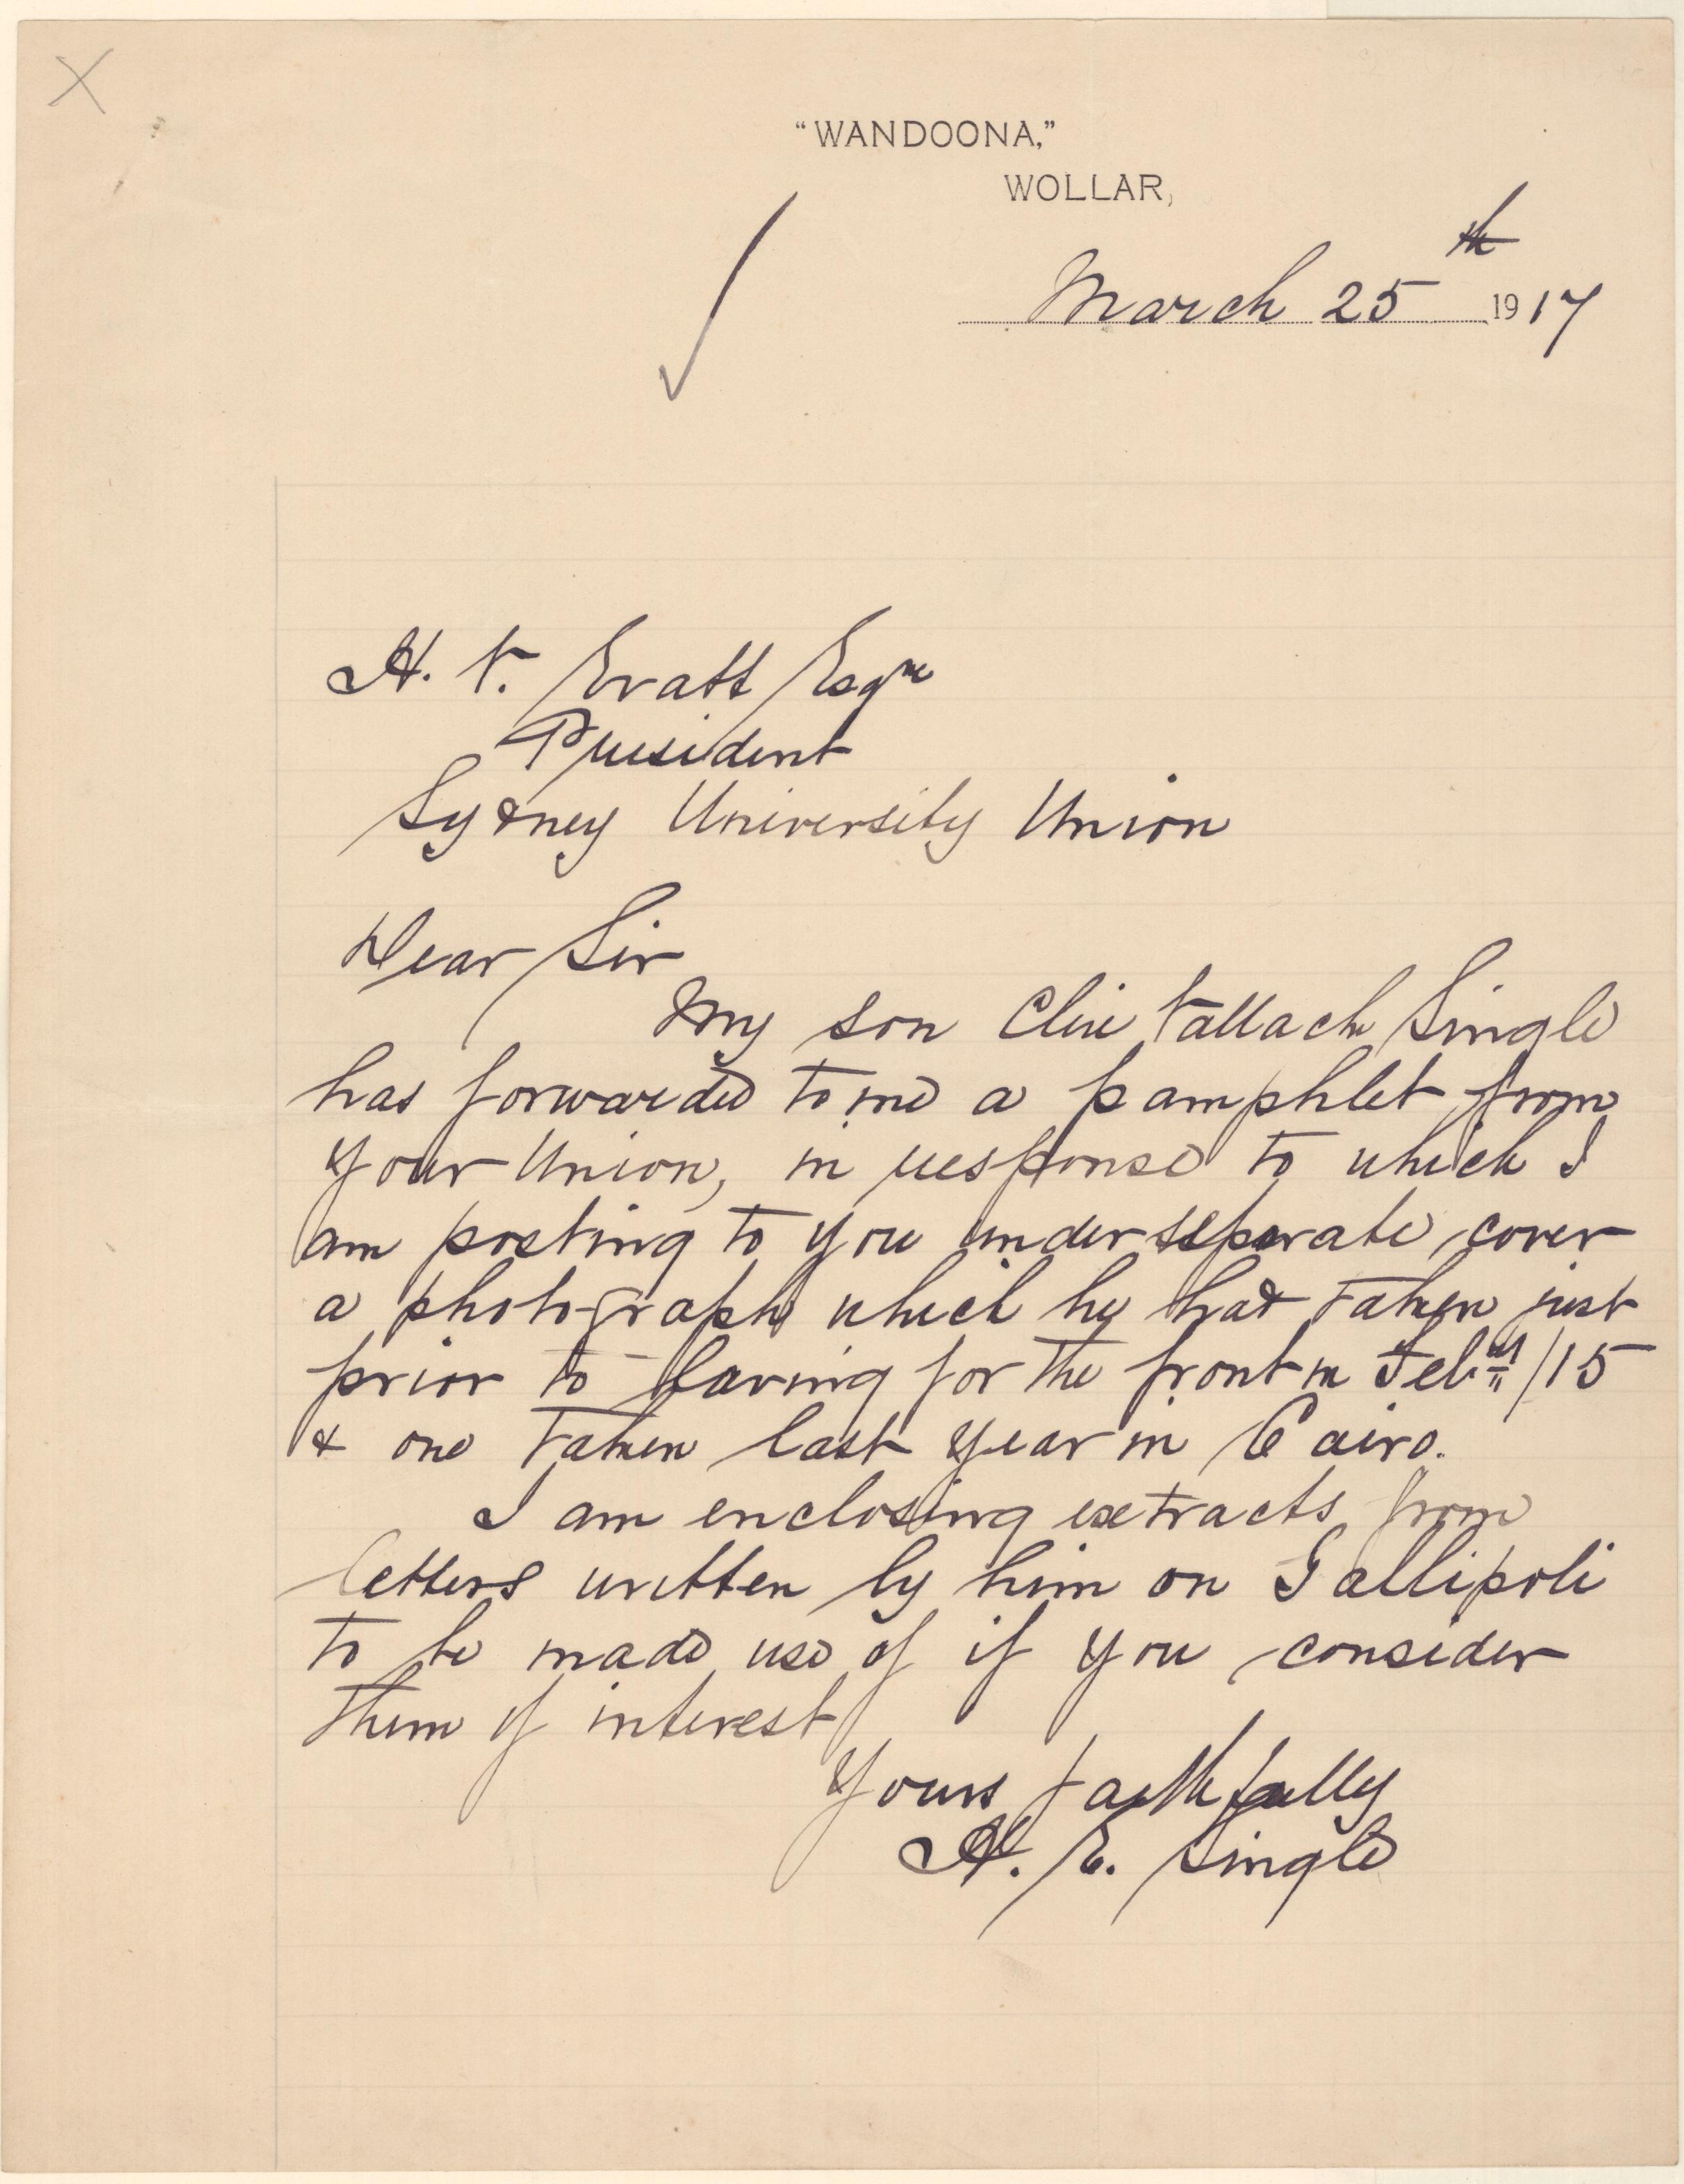 "WANDOONA,"
WOLLAR,
March 25th 1917
H. V. Evatt Esqre
President
Sydney University Union
Dear Sir
My son Clive Vallach Single
has forwarded to me a pamphlet from
your Union, in response to which I
am posting to you under separate cover
a photograph which he had taken just
prior to leaving for the front in Febry/15
& one taken last year in Cairo.
I am enclosing extracts from
letters written by him on Gallipoli
to be made use of if you consider
them of interest
Yours faithfully
H. E. Single